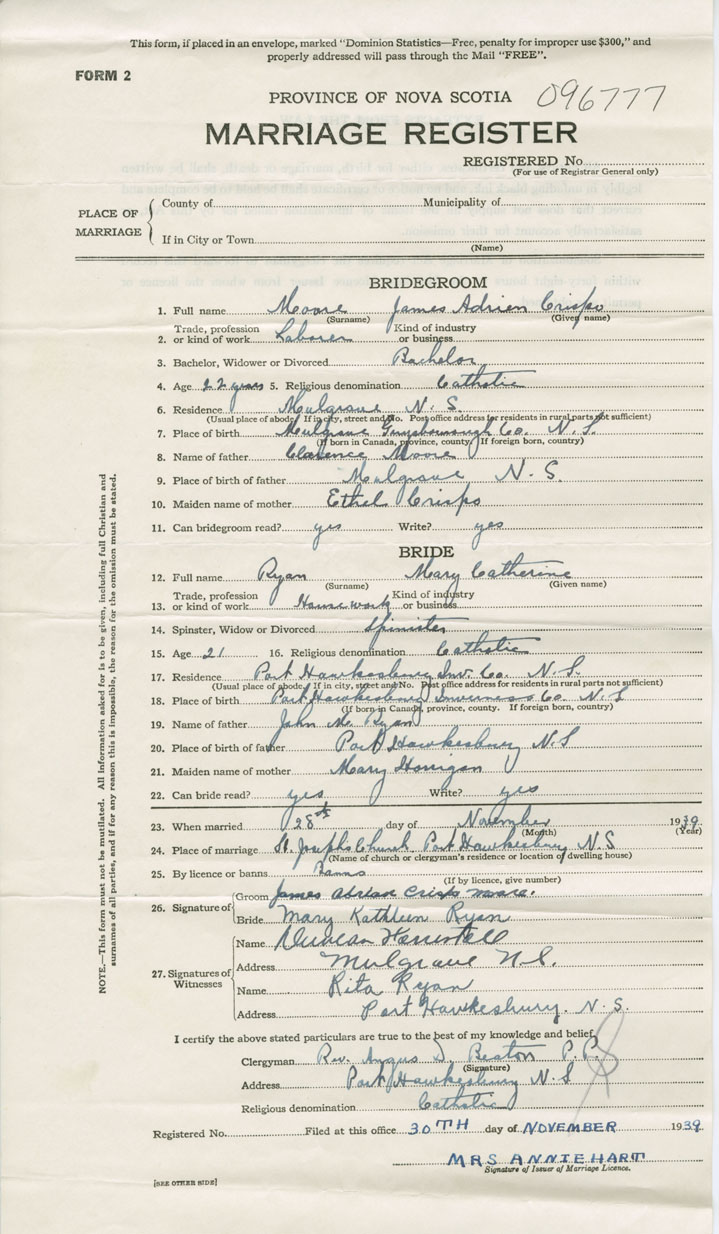 This form, if placed in an envelope, marked "Dominion Statistics—Free, penalty for improper use $300," and
properly addressed will pass through the Mail "FREE".
FORM 2
PROVINCE OF NOVA SCOTIA 096777
MARRIAGE REGISTER
REGISTERED No.
(For use of Registrar General only)
PLACE OF MARRIAGE
County of Municipality of
If in City or Town
(Name)
BRIDEGROOM
1. Full name Moore James Adrien Crispo
(Surname) (Given name)
Trade, profession Kind of industry
2. or kind of work Laborer or business
3. Bachelor, Widower or Divorced Bachelor
4. Age 22 years 5. Religious denomination Catholic
6. Residence Mulgrave N. S.
(Usual place of abode. If in city, street and No. Post office address for residents in rural parts not sufficient)
7. Place of birth Mulgrave Guysborough Co. N. S.
(If born in Canada, province, county. If foreign born, country)
8. Name of father Clarence Moore
9. Place of birth of father Mulgrave N. S.
10. Maiden name of mother Ethel Crispo
11. Can bridegroom read? yes Write? yes
BRIDE
12. Full name Ryan Mary Catherine
(Surname) (Given name)
Trade, profession Kind of industry
13. or kind of work Housework or business
14. Spinster, Widow or Divorced Spinister
15. Age 21 16. Religious denomination Catholic
17. Residence Port Hawkesbury Inv. Co. N. S.
(Usual place of abode. If in city, street and No. Post office address for residents in rural parts not sufficient)
18. Place of birth Port Hawkesbury Inverness Co. N. S
(If born in Canada, province, county. If foreign born, country)
19. Name of father John Ryan
20. Place of birth of father Port Hawkesbury N. S
21. Maiden name of mother Mary Horrigan
22. Can bride read? yes Write? yes
23. When married 28th day of November 1939
(Month) (Year)
24. Place of marriage St. Josephs Church Port Hawkesbury N. S
(Name of church or clergyman's residence or location of dwelling house)
25. By licence or banns Banns
(If by licence, give number)
26. Signature of
Groom James Adrian Crispo Moore.
Bride Mary Kathleen Ryan
27. Signatures of Witnesses
Name Duncan
Address Mulgrave N.S.
Name Rita Ryan
Address Port Hawkesbury. N. S.
I certify the above stated particulars are true to the best of my knowledge and belief.
Clergyman Rev. Angus D. Beaton P. P.
(Signature)
Address Port Hawkesbury N. S
Religious denomination Catholic
Registered No. Filed at this office 30TH day of NOVEMBER 1939
MRS ANNIE HART
Signature of Issuer of Marriage Licence.
[SEE OTHER SIDE]
NOTE.—This form must not be mutilated. All information asked for is to be given, including full Christian and
surnames of all parties, and if for any reason this is impossible, the reason for the omission must be stated.